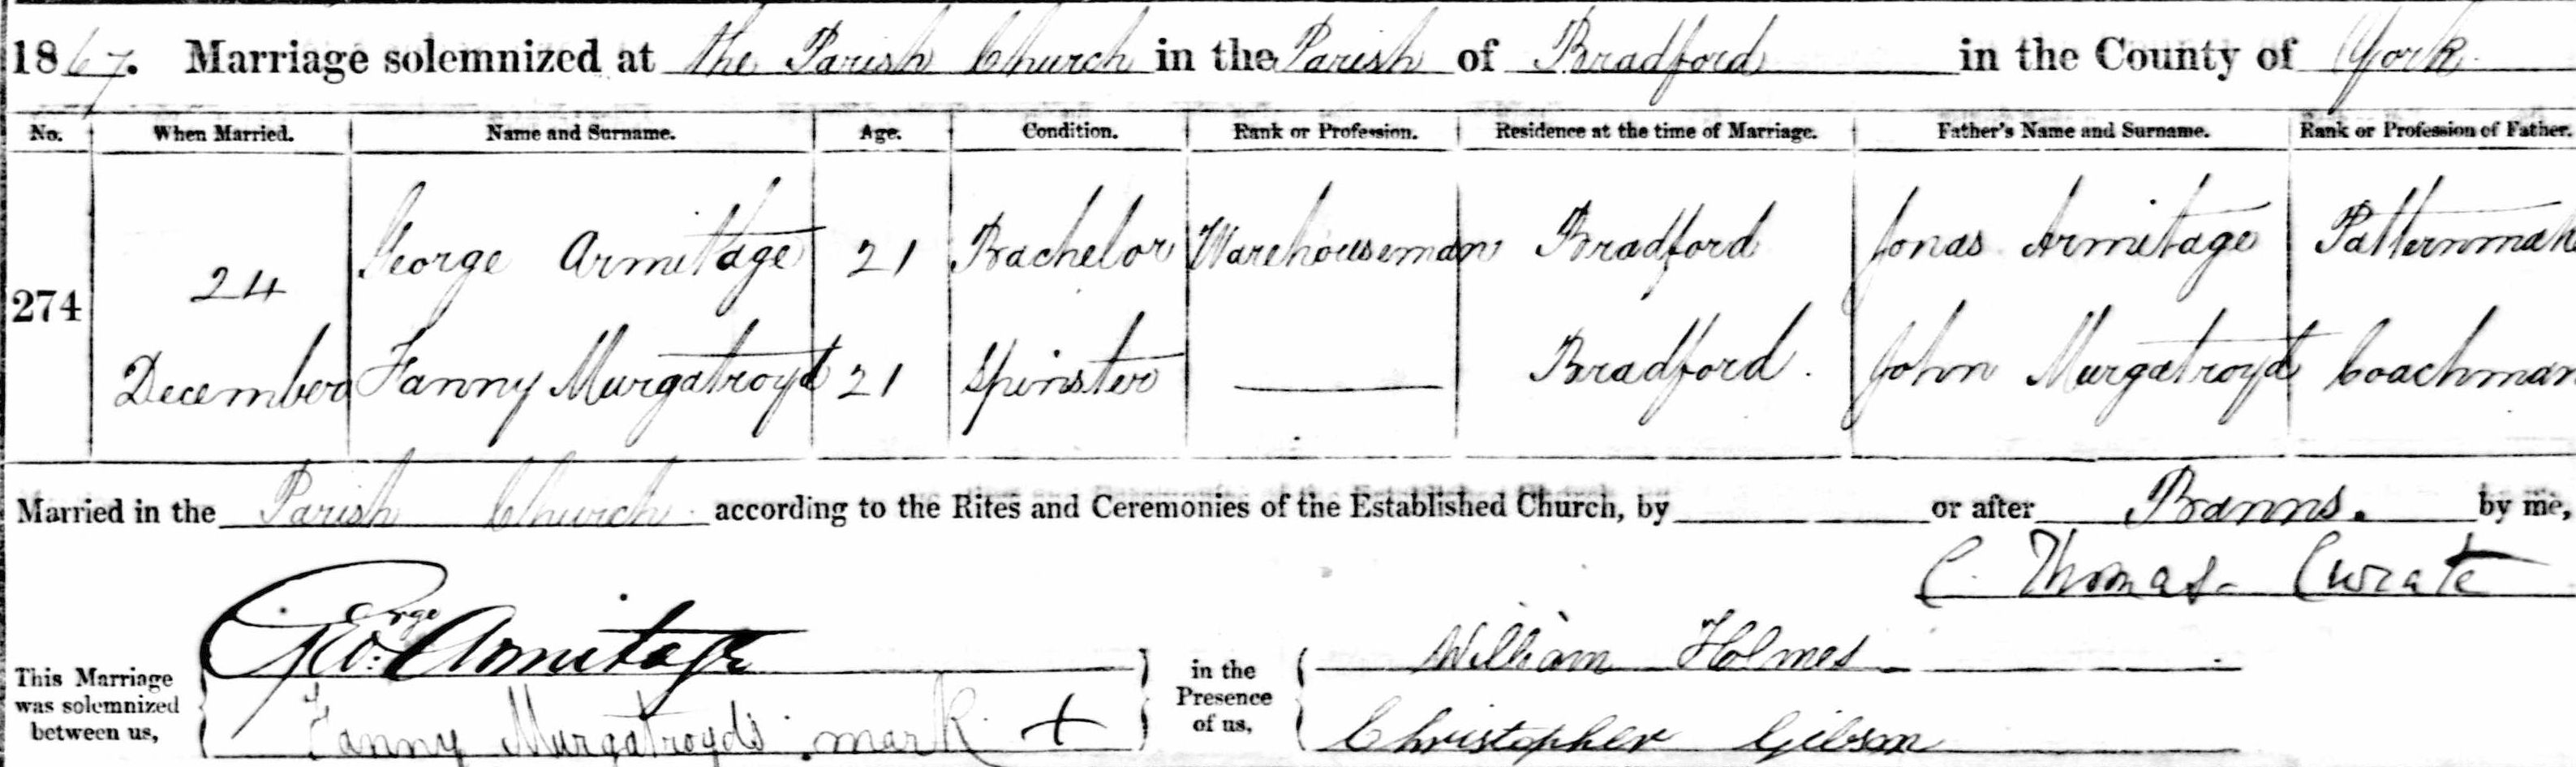 1867. Marriage solemnized at the Parish Church in the Parish of Bradford in the County of York
No. When Married. Name and Surname. Age. Condition. Rank or Profession. Residence at the time of Marriage. Father's Name and Surname. Rank or Profession of Father.
274 24 George Armitage 21 Bachelor Warehouseman Bradford Jonas Armitage Patternmak
December Fanny Murgatroyd 21 Spinster Bradford. John Murgatroyd Coachman
Married in the Parish Church according to the Rites and Ceremonies of the Established Church, by or after Banns. by me,
C. Thomas Curate
This Marriage was solemnized between us,
George
Geo: Armitage
Fanny Murgatroyd's mark +
in the Presence of us,
William Holmes
Christopher Gibson